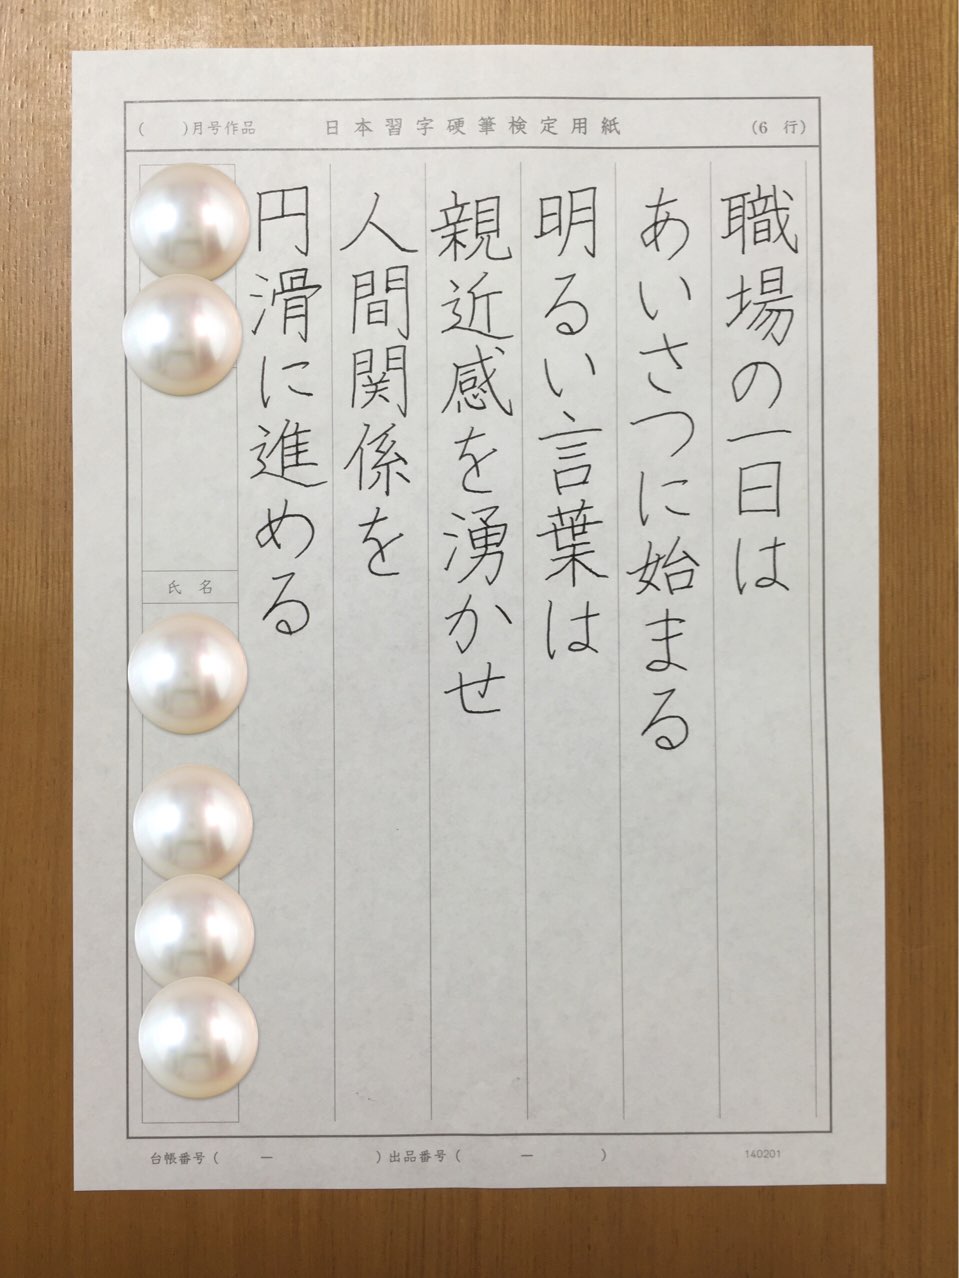 (　　)月号作品　日本習字硬筆検定用紙　(6　行)
職場の一日は
あいさつに始まる
明るい言葉は
親近感を湧かせ
人間関係を
円滑に進める
氏　名
台帳番号(　　ー　　)出品番号(　　ー　　)　140201